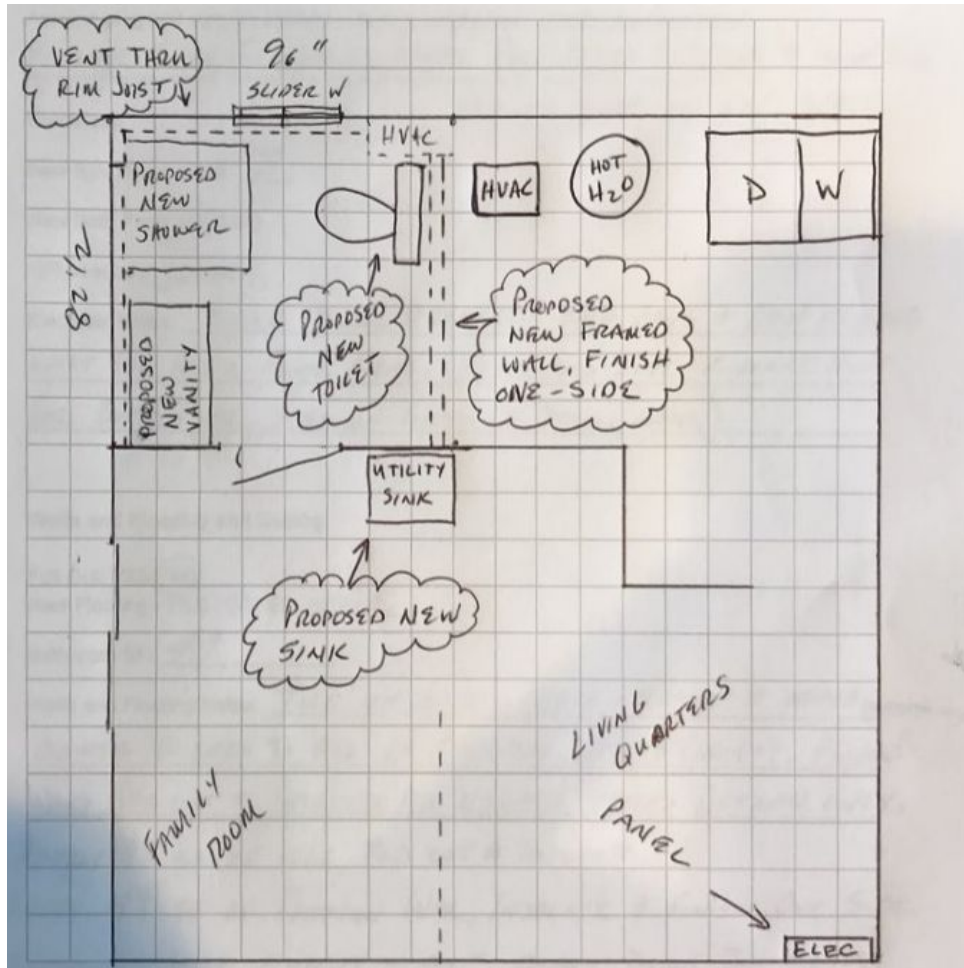 VENT THRU
RIM JOIST
96"
SLIDER W
HVAC
PROPOSED
NEW
SHOWER
HVAC
HOT
H2O
D
W
82 1/2
PROPOSED
NEW
VANITY
PROPOSED
NEW
TOILET
PROPOSED
NEW FRAMED
WALL, FINISH
ONE-SIDE
UTILITY
SINK
PROPOSED NEW
SINK
LIVING
QUARTERS
FAMILY
ROOM
PANEL
ELEC